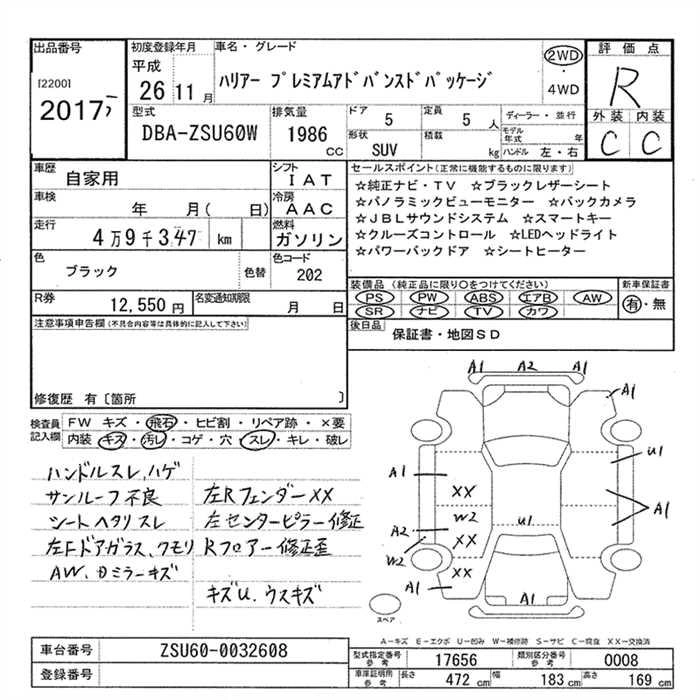 出品番号
[2200]
2017
初度登録年月
平成
26 11月
車名・グレード
ハリアー プレミアムアドバンスドパッケージ
2WD
・
4WD
評価点
R
外装 内装
C C
型式
DBA-ZSU60W
排気量
1986 CC
ドア
5
定員
5 人
形状
SUV
積載
kg
ディーラー・並行
モデル年式 年
ハンドル 左・右
車歴
自家用
シフト
IAT
車検
年 月( 日)
冷房
AAC
走行
4万9千347 km
燃料
ガソリン
色
ブラック
色替
色コード
202
R券
12,550円
名変通知期限
月 日
セールスポイント(正常に機能するものに限ります)
☆純正ナビ・TV ☆ブラックレザーシート
☆パノラミックビューモニター ☆バックカメラ
☆JBLサウンドシステム ☆スマートキー
☆クルーズコントロール ☆LEDヘッドライト
☆パワーバックドア ☆シートヒーター
装備品 (純正品に限り○をつけてください)
PS PW ABS エアB AW
SR ナビ TV カワ
新車保証書
有・無
後日品
保証書・地図SD
注意事項申告欄(不具合内容等は具体的に記入して下さい)
修復歴 有〔箇所 〕
検査員記入欄
FW キズ・飛石・ヒビ割・リペア跡・×要
内装・キズ・汚レ・コゲ・穴・スレ・キレ・破レ
ハンドルスレ、ハゲ
サンルーフ不良 左Rフェンダー××
シートヘタリ スレ 左センターピラー修正
左Fドアガラス、クモリ Rフロアー修正歪
AW、Dミラーキズ
キズU、ウスキズ
A1 A2 A1
A1
U1
A1
XX
W2
A2
XX
W2
U1
A1
XX
A1
A1
スペア
A-キズ E-エクボ U-凹み W-補修跡 S-サビ C-腐食 XX-交換済
車台番号
ZSU60-0032608
登録番号
型式指定番号 参考
17656
類別区分番号 参考
0008
車庫証明用 参考
長さ 472 cm 幅 183 cm 高さ 169 cm